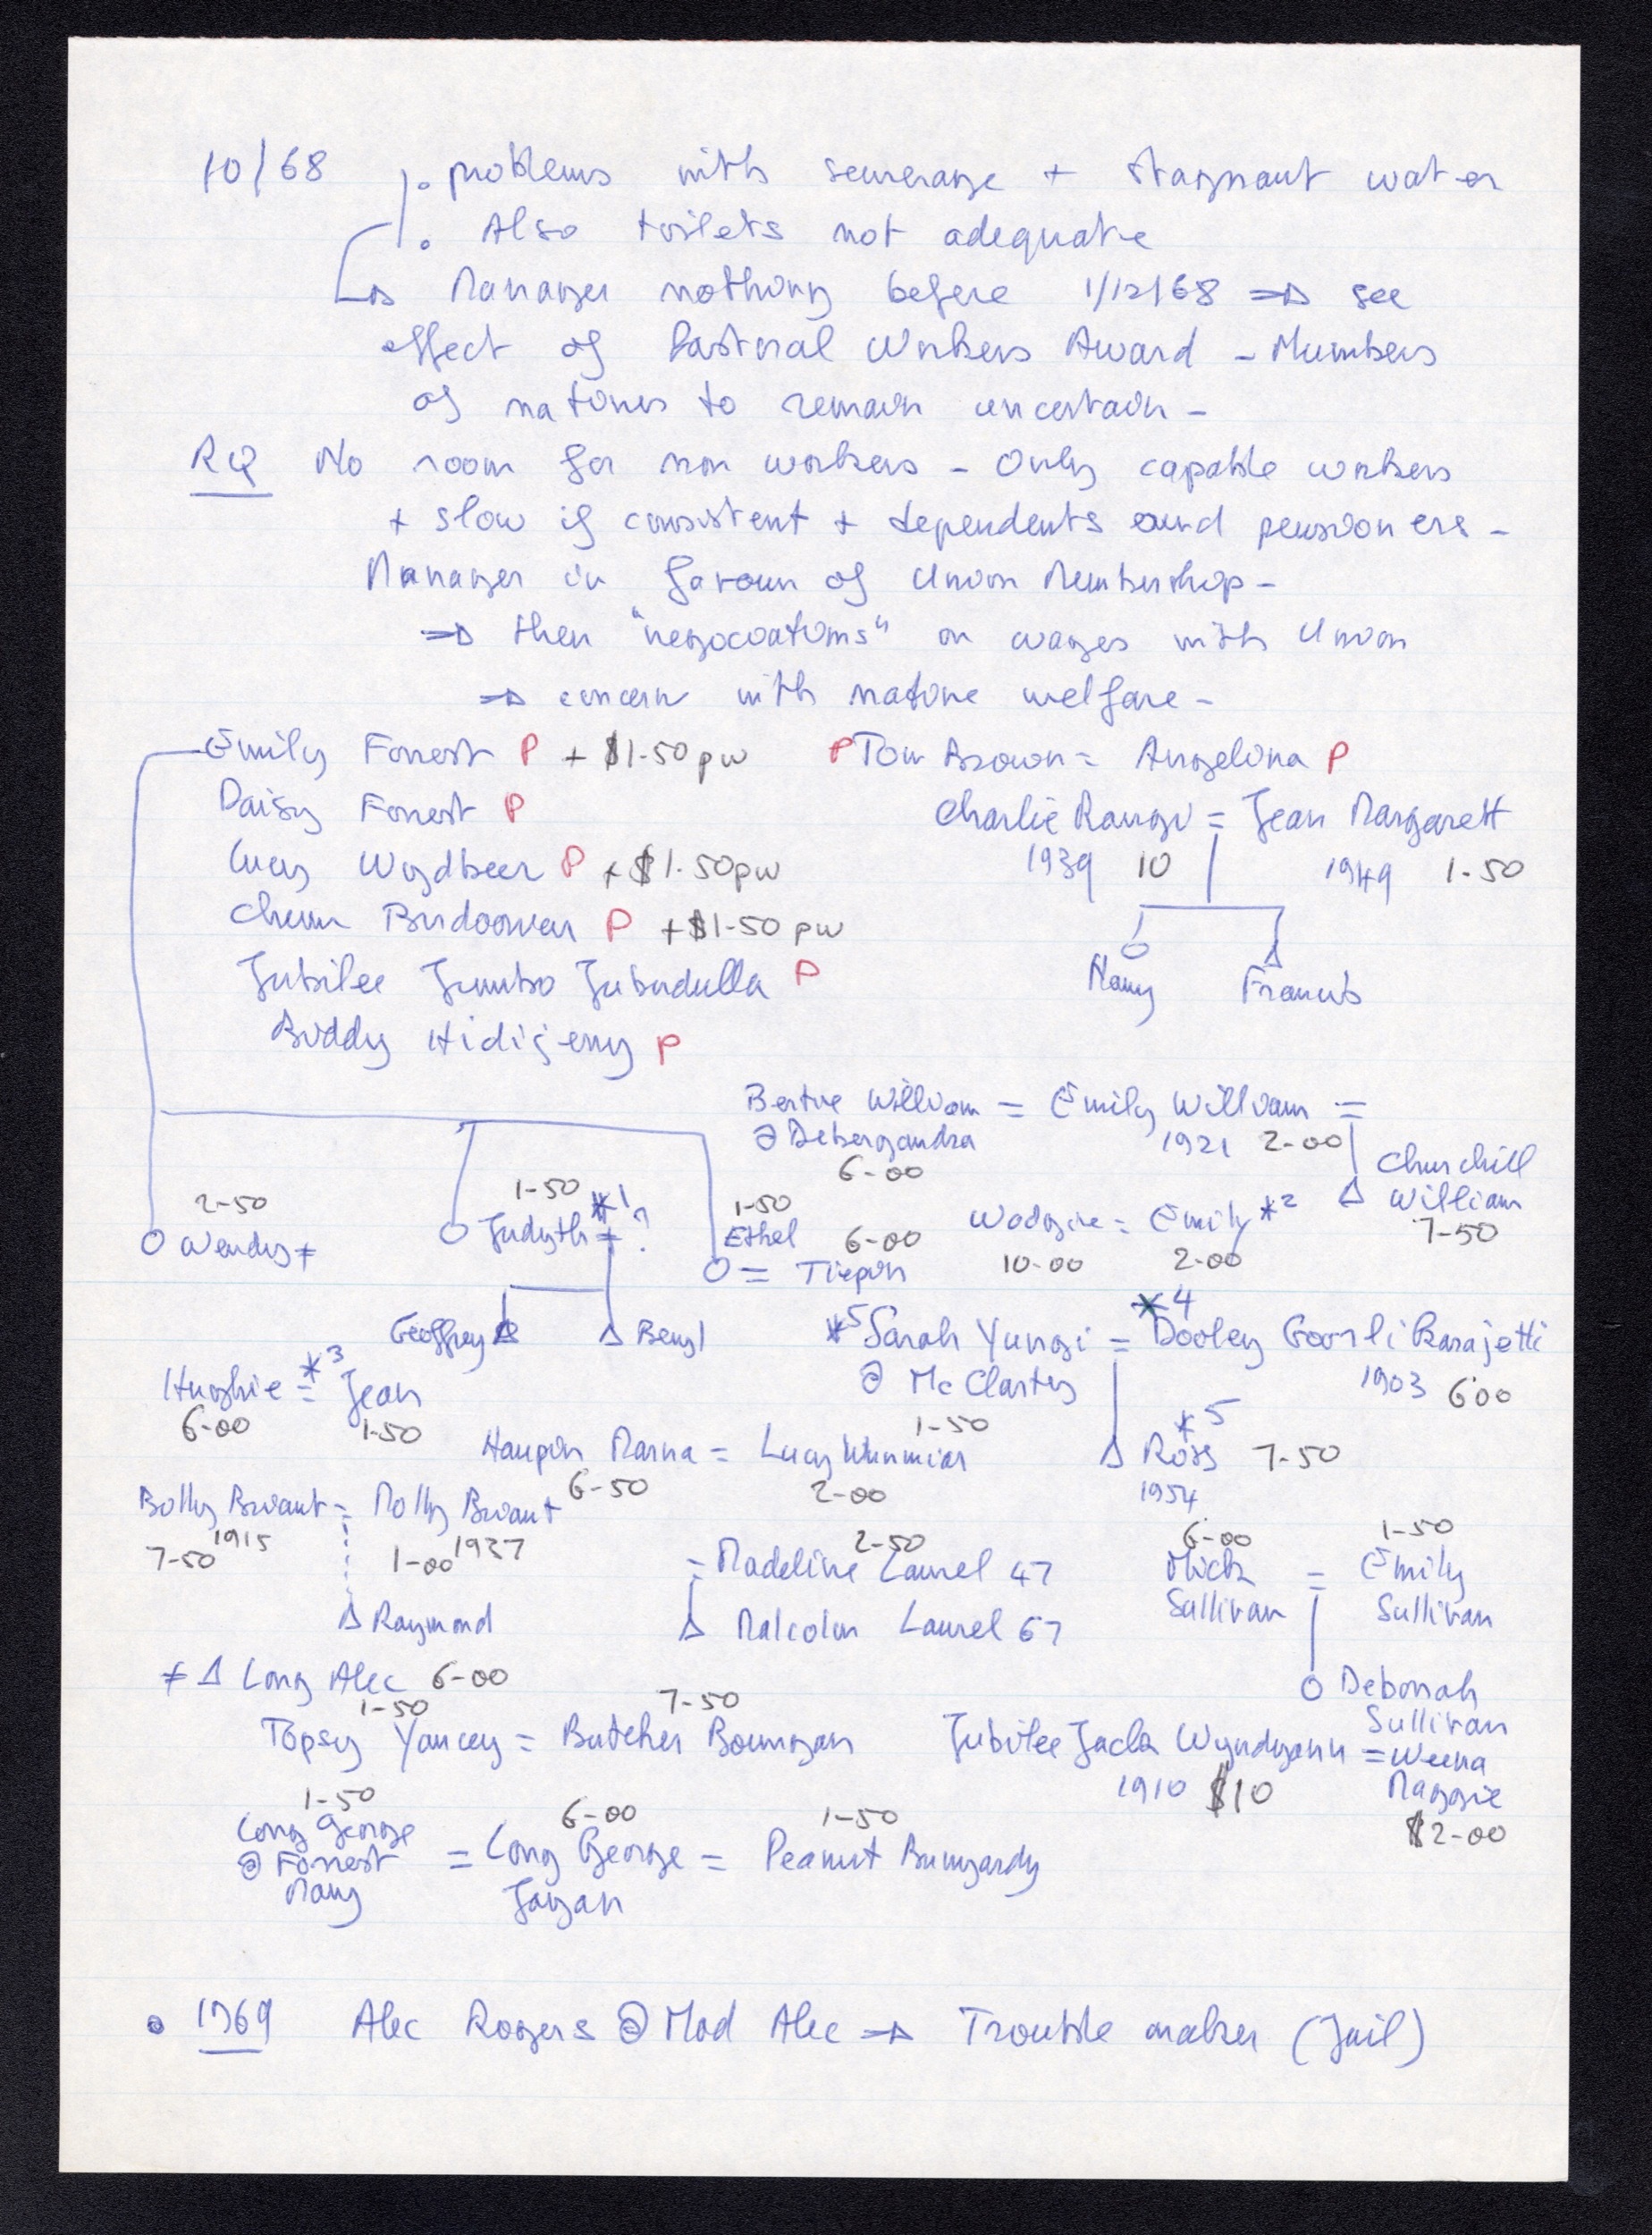 10/68 . problems with sewerage + stagnant water
. Also toilets not adequate
→ Manager nothing before 1/12/68 ⇒ see
effect of Pastoral Workers Award – Numbers
of natives to remain uncertain –
RQ No room for non workers – Only capable workers
+ slow if consistent + dependents and pensioners –
Manager in favour of Union Membership –
⇒ then "negocoations" on wages with Union
⇒ concern with native welfare –
Emily Forrest P + $1-50 pw
Daisy Forrest P
Lucy Wydbeer P + $1-50 pw
P + $1-50 pw
Jubilee Jumbo Jubudulla P
Buddy P
P Tom Brown = Angelina P
Charlie Rangi = Jean Margarett
1939 10 1949 1-50
Francis
Bertie William = Emily William =
@ Debergandra 1921 2-00
6-00
Churchill
William
7-50
2-50
Wendy ≠
1-50
Judyth *1 = ?
1-50
Ethel 6-00
= Tiepin
Wodgie = Emily *2
10-00 2-00
Geoffrey Beryl
*5 Sarah Yungi = *4 Dooley Goorlibarajetti
@ McClarty 1903 6-00
*5
Ross 7-50
1954
Hughie = *3 Jean
6-00 1-50
1-50
Haupin Marna = Lucy Wunmiar
6-50 2-00
Bolly Bryant = Molly Bryant
7-50 1915 1-00 1937
Raymond
2-50
= Madeline Laurel 47
Malcolm Laurel 67
6-00 1-50
Mick = Emily
Sullivan Sullivan
Deborah
Sullivan
≠ Long Alec 6-00
1-50 7-50
Topsy Yancey = Butcher Boumgan
Jubilee Jack Wyndgann = Weena
1910 $10 Maggie
$2-00
1-50 6-00 1-50
Long George = Long George = Peanut Bungardy
@ Forrest Jagan
Mary
• 1969 Alec Rogers @ Mad Alec ⇒ Trouble maker (Jail)